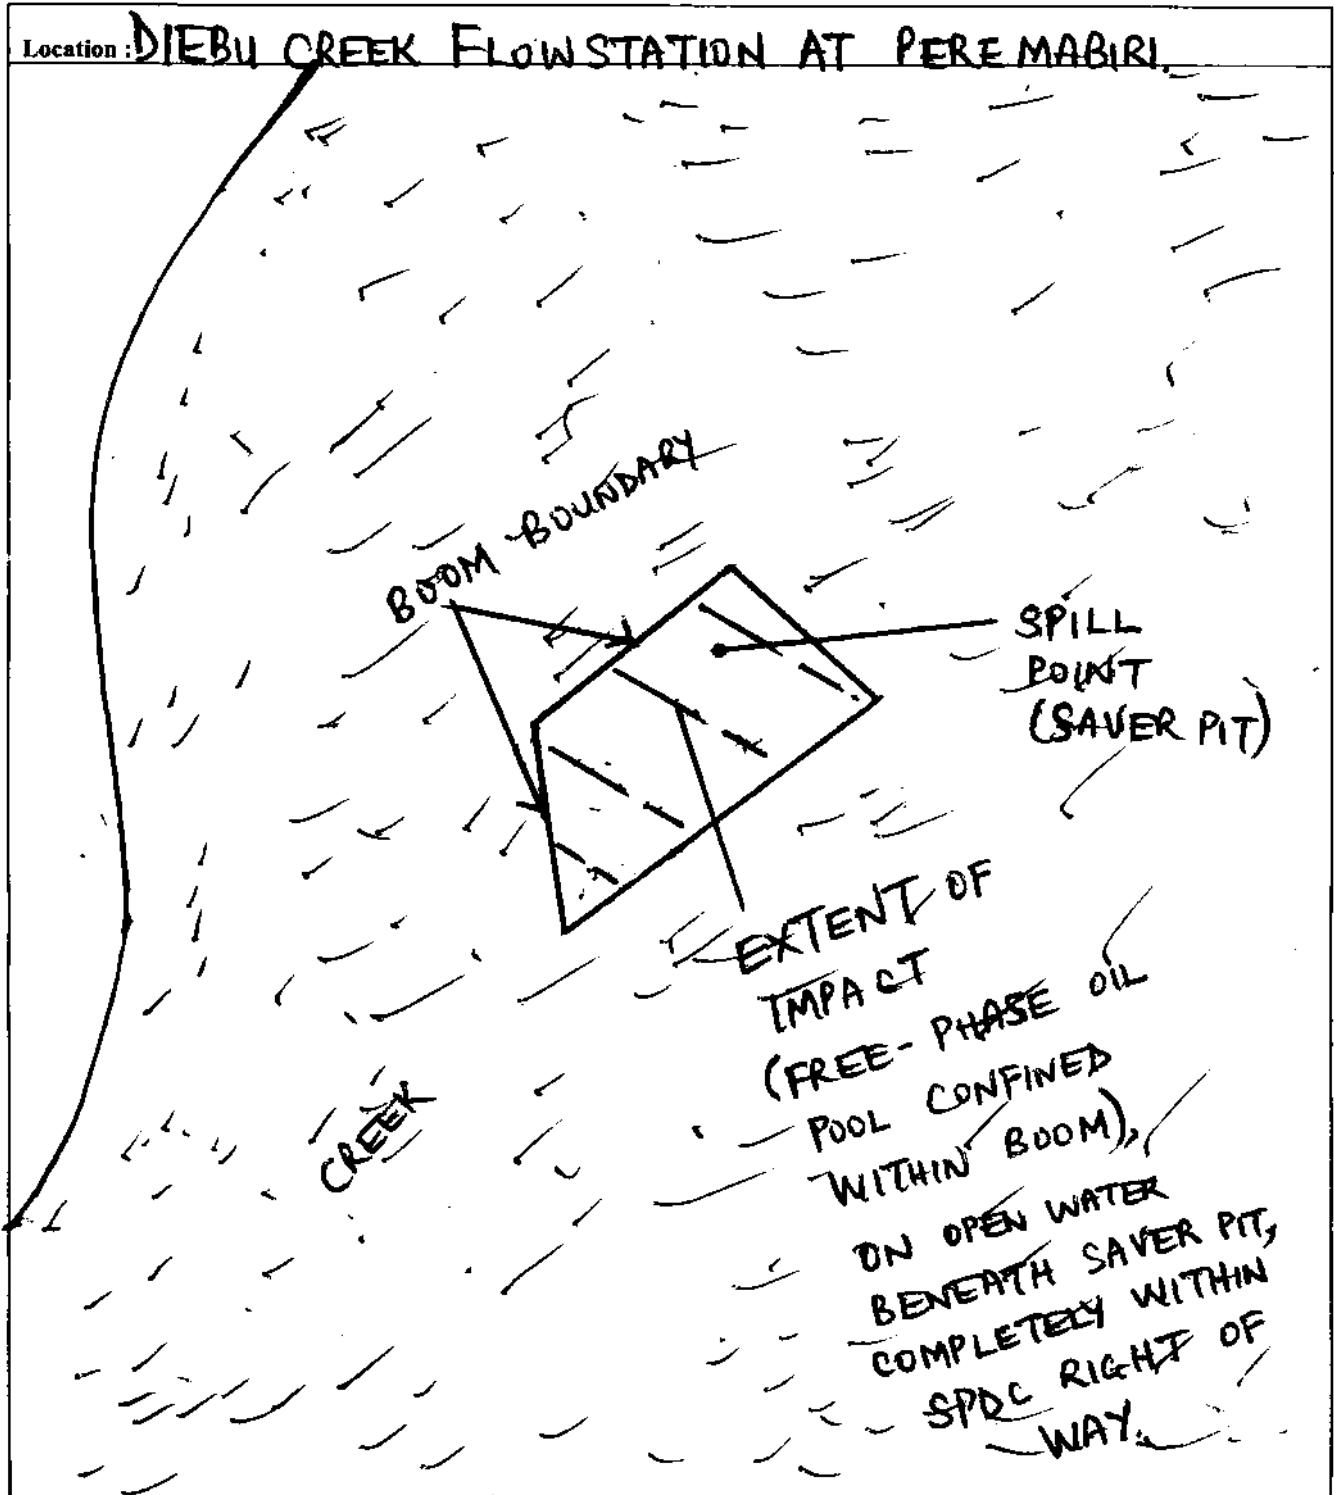 Location : DIEBU CREEK FLOWSTATION AT PEREMABIRI.
BOOM BOUNDARY
SPILL
POINT
(SAVER PIT)
EXTENT OF
IMPACT
(FREE-PHASE OIL
POOL CONFINED
WITHIN BOOM),
ON OPEN WATER
BENEATH SAVER PIT,
COMPLETELY WITHIN
SPDC RIGHT OF
WAY.
CREEK